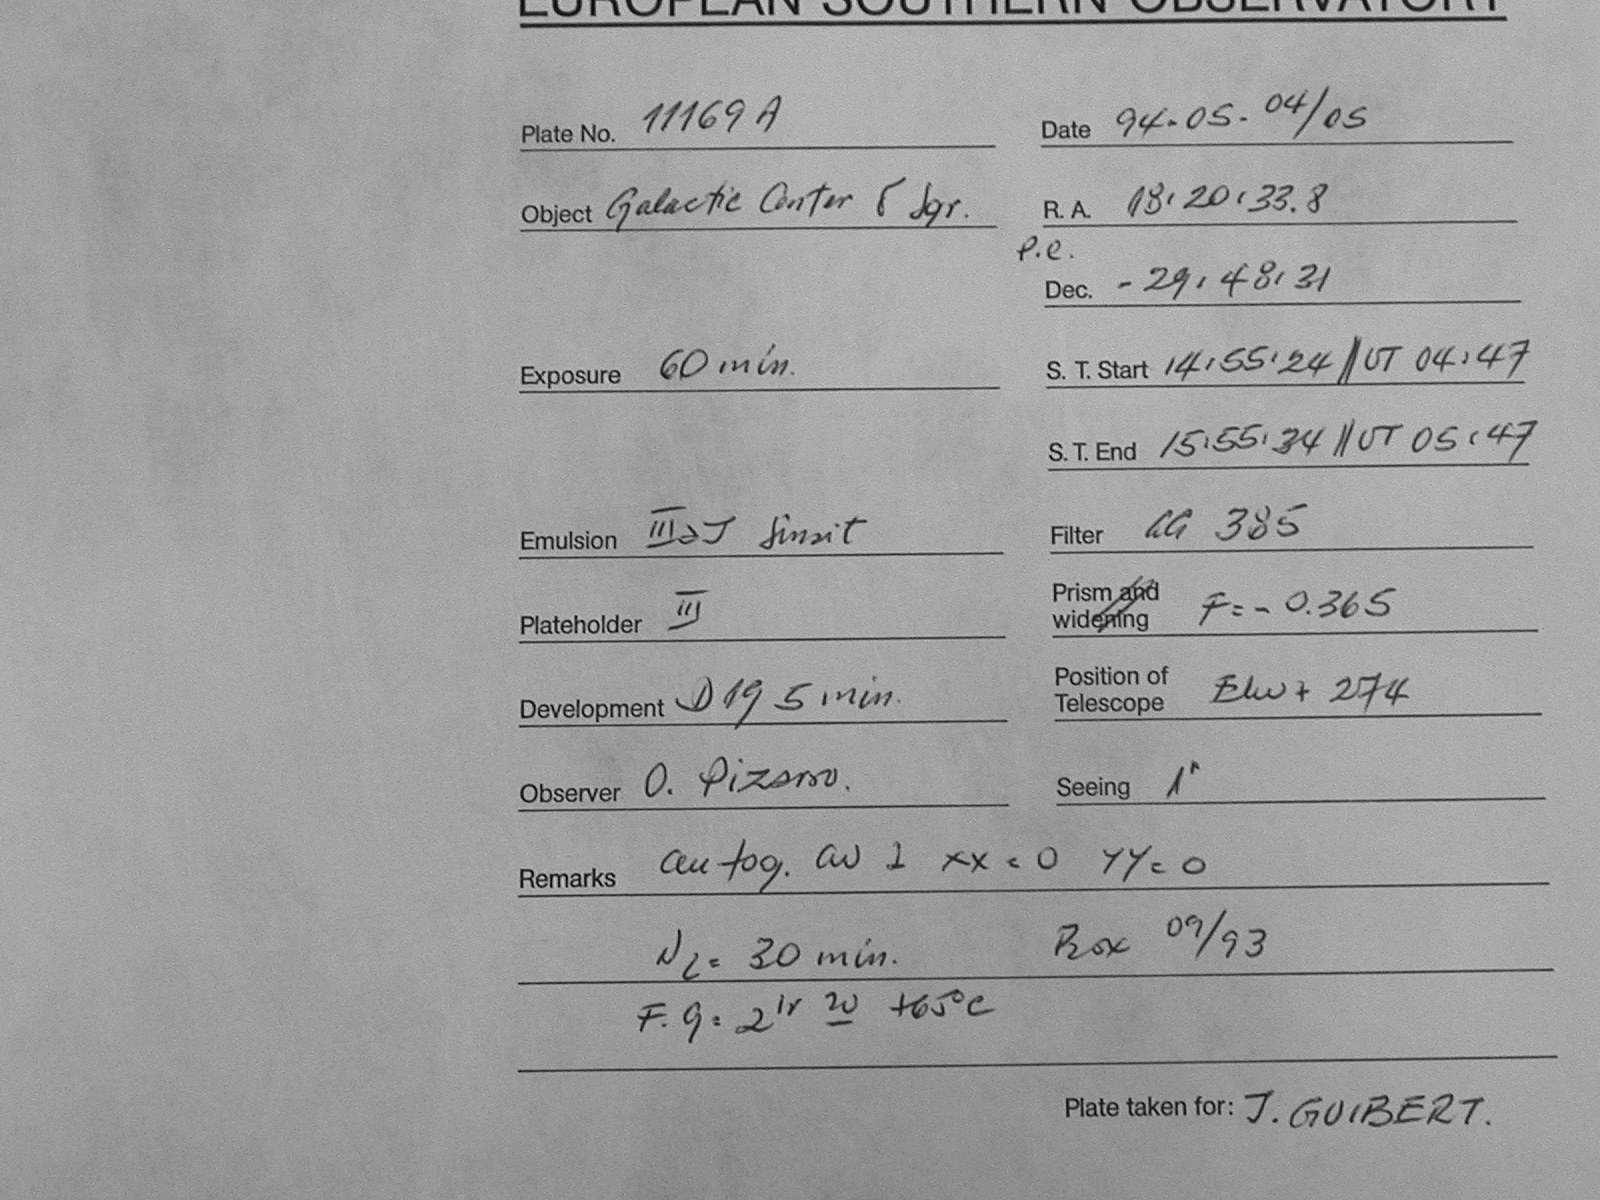 EUROPEAN SOUTHERN OBSERVATORY
Plate No. 11169 A
Date 94-05-04/05
Object Galactic Center δ Sgr.
R. A. 18:20:33.8
P.e.
Dec. -29:48:31
Exposure 60 min.
S. T. Start 14:55:24 // UT 04:47
S. T. End 15:55:34 // UT 05:47
Emulsion IIIaJ
Filter GG 385
Plateholder III
Prism and widening F=-0.365
Development D19 5 min.
Position of Telescope + 274
Observer O. Pizarro.
Seeing 1"
Remarks xx=0 YY=0
N2= 30 min. Box 09/93
F.G= 2 +65°C
Plate taken for: J. GUIBERT.